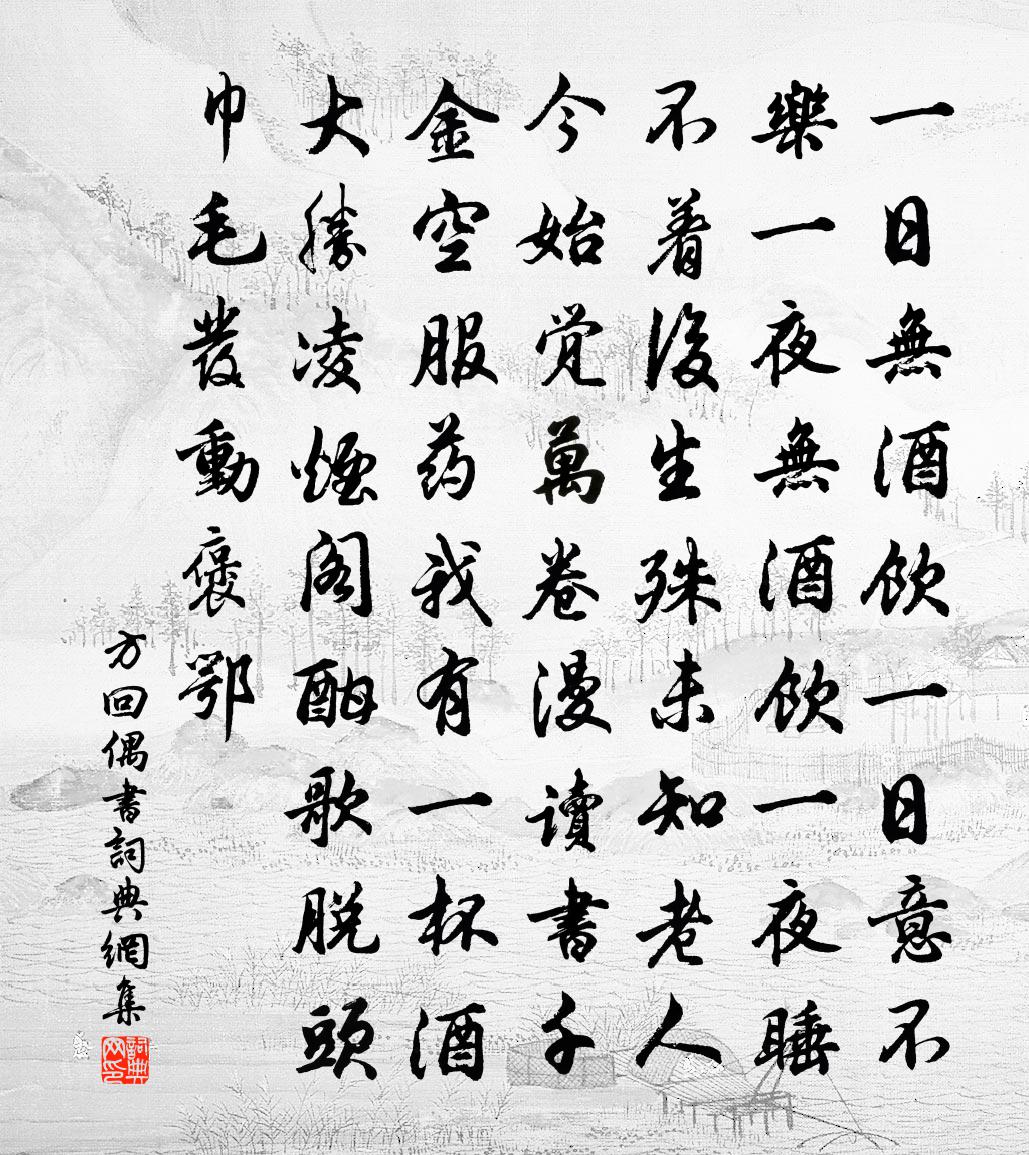 一日無酒飲一日意不
樂一夜無酒飲一夜睡
不着後生殊未知老人
今始覚萬卷漫讀書千
金空服药我有一杯酒
大勝凌煙阁酣歌脱頭
巾毛發動褒鄂
方回偶書詞典網集
詞典网印